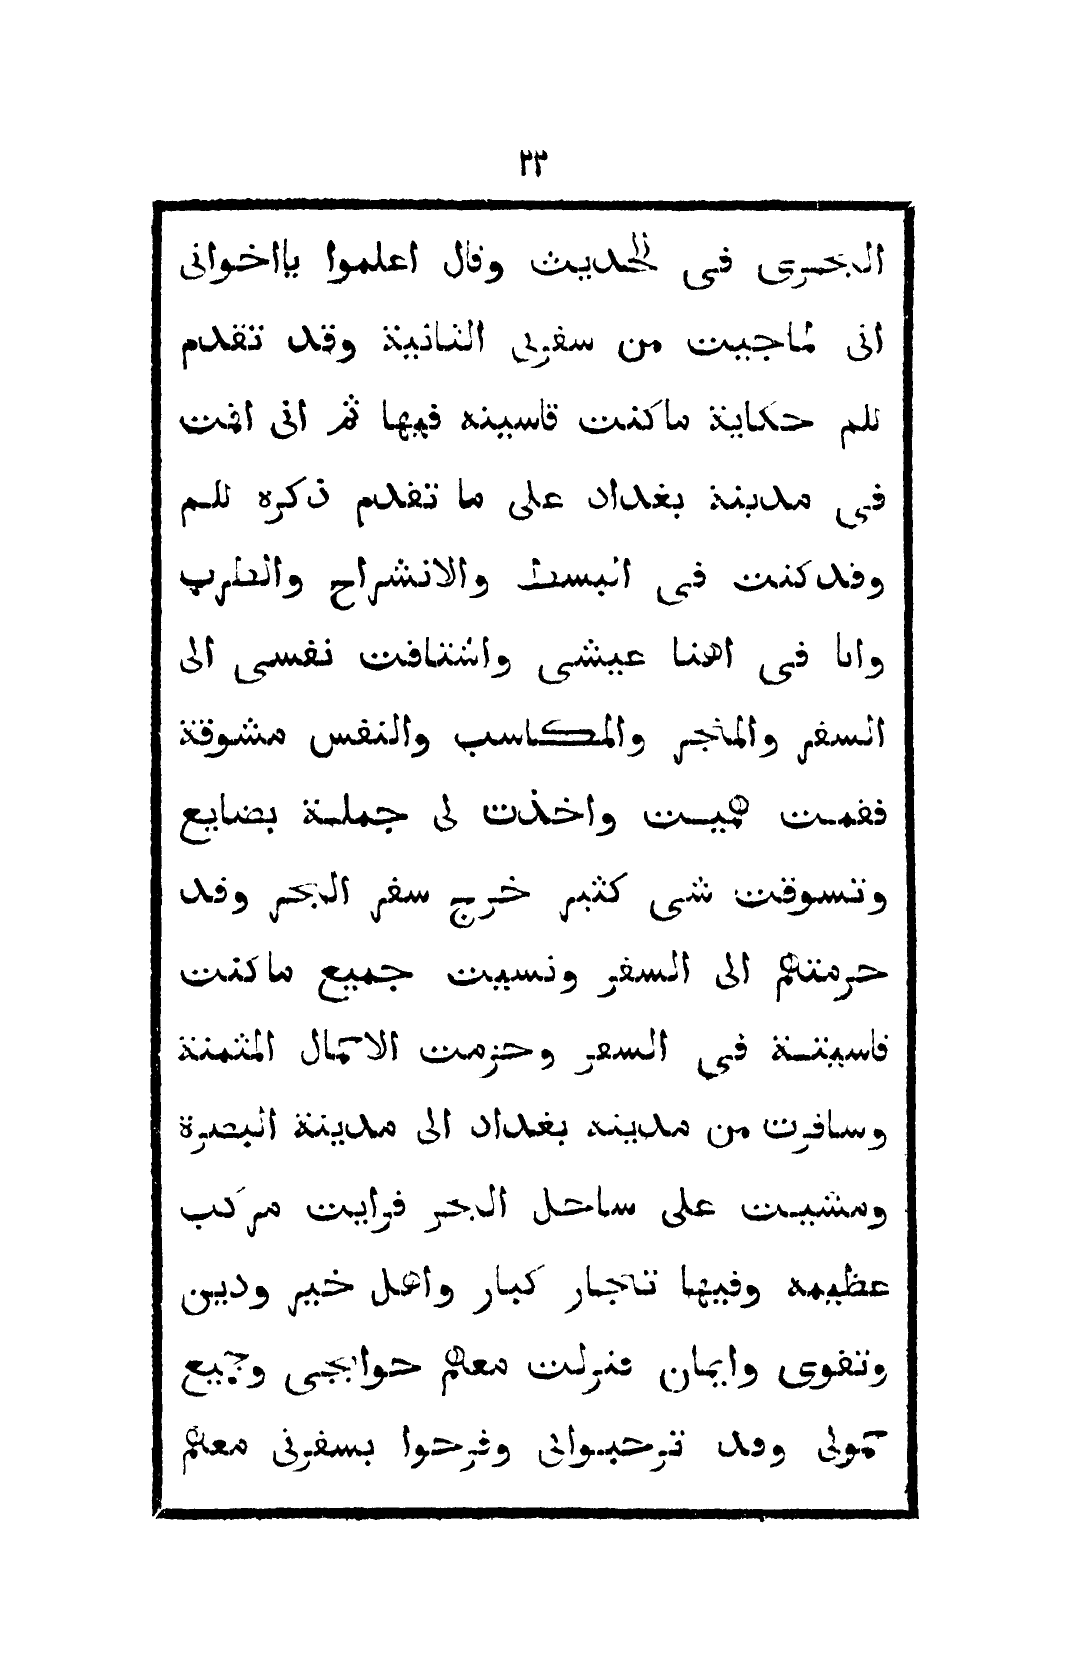 ٢٣
البحرى فى الحديث وقال اعلموا يااخوانى
انى لماجيت من سفرتى الثانية وقد تقدم
للم حكاية ماكنت قاسيته فيها ثم انى اقمت
فى مدينة بغداد على ما تقدم ذكره للم
وقدكنت فى البسط والانشراح والطرب
وانا فى اهنا عيشى واشتاقت نفسى الى
السفر والمتجر والمكاسب والنفس مشوقة
فقمت واخذت لى جملة بضايع
وتسوقت شى كثير خرج سفر البحر وقد
حزمتهم الى السفر ونسيت جميع ماكنت
قاسيتة فى السفر وحزمت الاحمال المثمنة
وسافرت من مدينه بغداد الى مدينة البصرة
ومشيت على ساحل البحر فرايت مركب
عظيمه وفيها تاجار كبار واهل خير ودين
وتقوى وايمان فنزلت معهم حوايجى وجميع
حمولى وقد ترحبوانى وفرحوا بسفرنى معهم